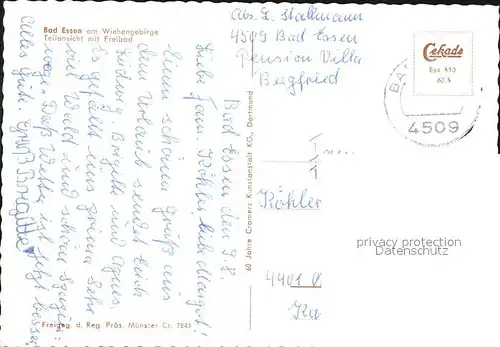 Bad Essen am Wiehengebirge
Teilansicht mit Freibad
Abs. L. Stallmann
4509 Bad Essen
Pension Villa
Bad Essen den 9.8.
Liebe Fam. Köhler, liebe Margot!
Einen schönen Gruß aus
dem Urlaub sendet Euch
Ludwig Brigitte und Agnes
es gefällt uns prima. Sehr
viel Wald und schöne
wege. Das Wetter ist jetzt besser.
Alles Gute Gruß Brigitte
60 Jahre Cramers Kunstanstalt KG., Dortmund
Freigeg. d. Reg. Präs. Münster Cr. 7845
Cekade
Ess 410
60 §
BA
4509
Köhler
4401
privacy protection
Datenschutz